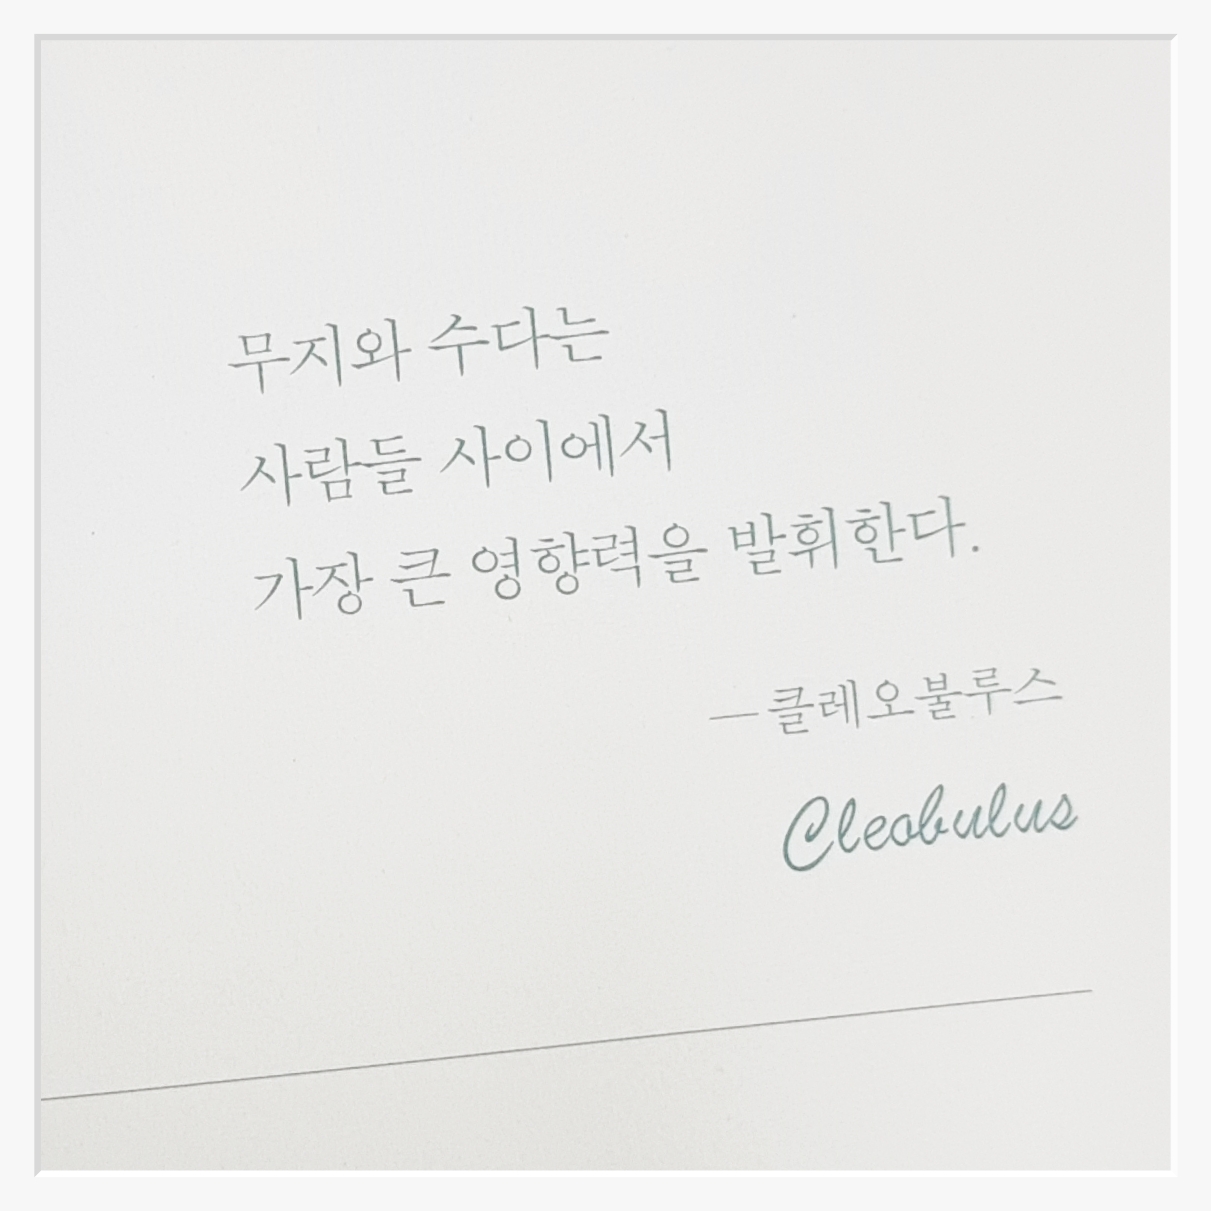 무지와 수다는
사람들 사이에서
가장 큰 영향력을 발휘한다.
—클레오불루스
Cleobulus